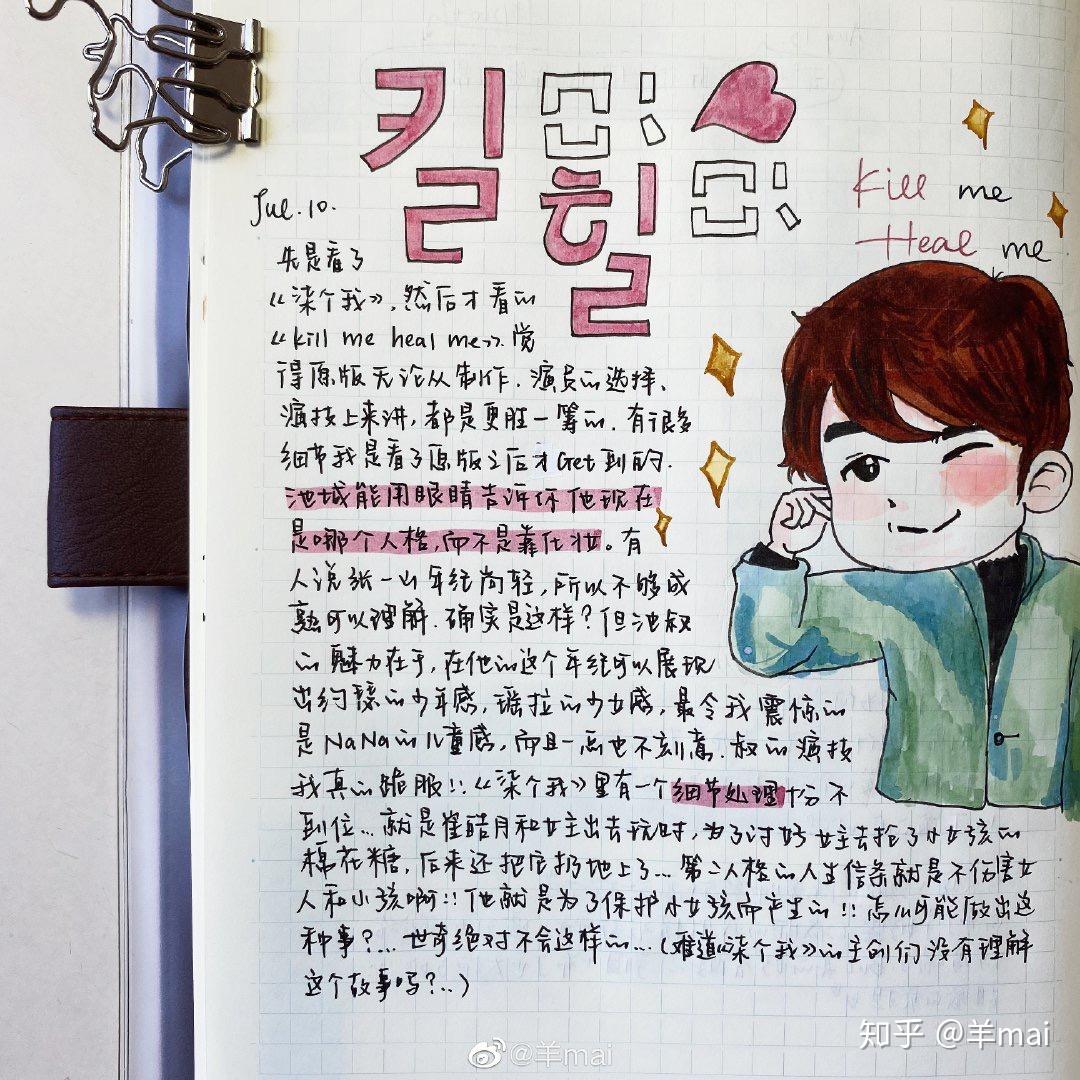 킬미
힐미
Kill me
Heal me
Jul.10.
先是看了
《柒个我》,然后才看的
《kill me heal me》.觉
得原版无论从制作.演员的选择、
演技上来讲,都是更胜一筹的.有很多
细节我是看了原版之后才Get到的.
池城能用眼睛告诉你他现在
是哪个人格,而不是靠化妆。有
人说张一山年纪尚轻,所以不够成
熟可以理解.确实是这样?但池叔
的魅力在于,在他的这个年纪可以展现
出约瑟的少年感,瑶拉的少女感,最令我震惊的
是NaNa的儿童感,而且一点也不刻意.叔的演技
我真的跪服!!《柒个我》里有一个细节处理十分不
到位...就是崔皓月和女主出去玩时,为了讨好女主去抢了小女孩的
棉花糖,后来还把它扔地上了...第二人格的人生信条就是不伤害女
人和小孩啊!!他就是为了保护小女孩而产生的!!怎么可能做出这
种事?...世奇绝对不会这样的...(难道《柒个我》的主创们没有理解
这个故事吗?...)
知乎 @羊mai
@羊mai